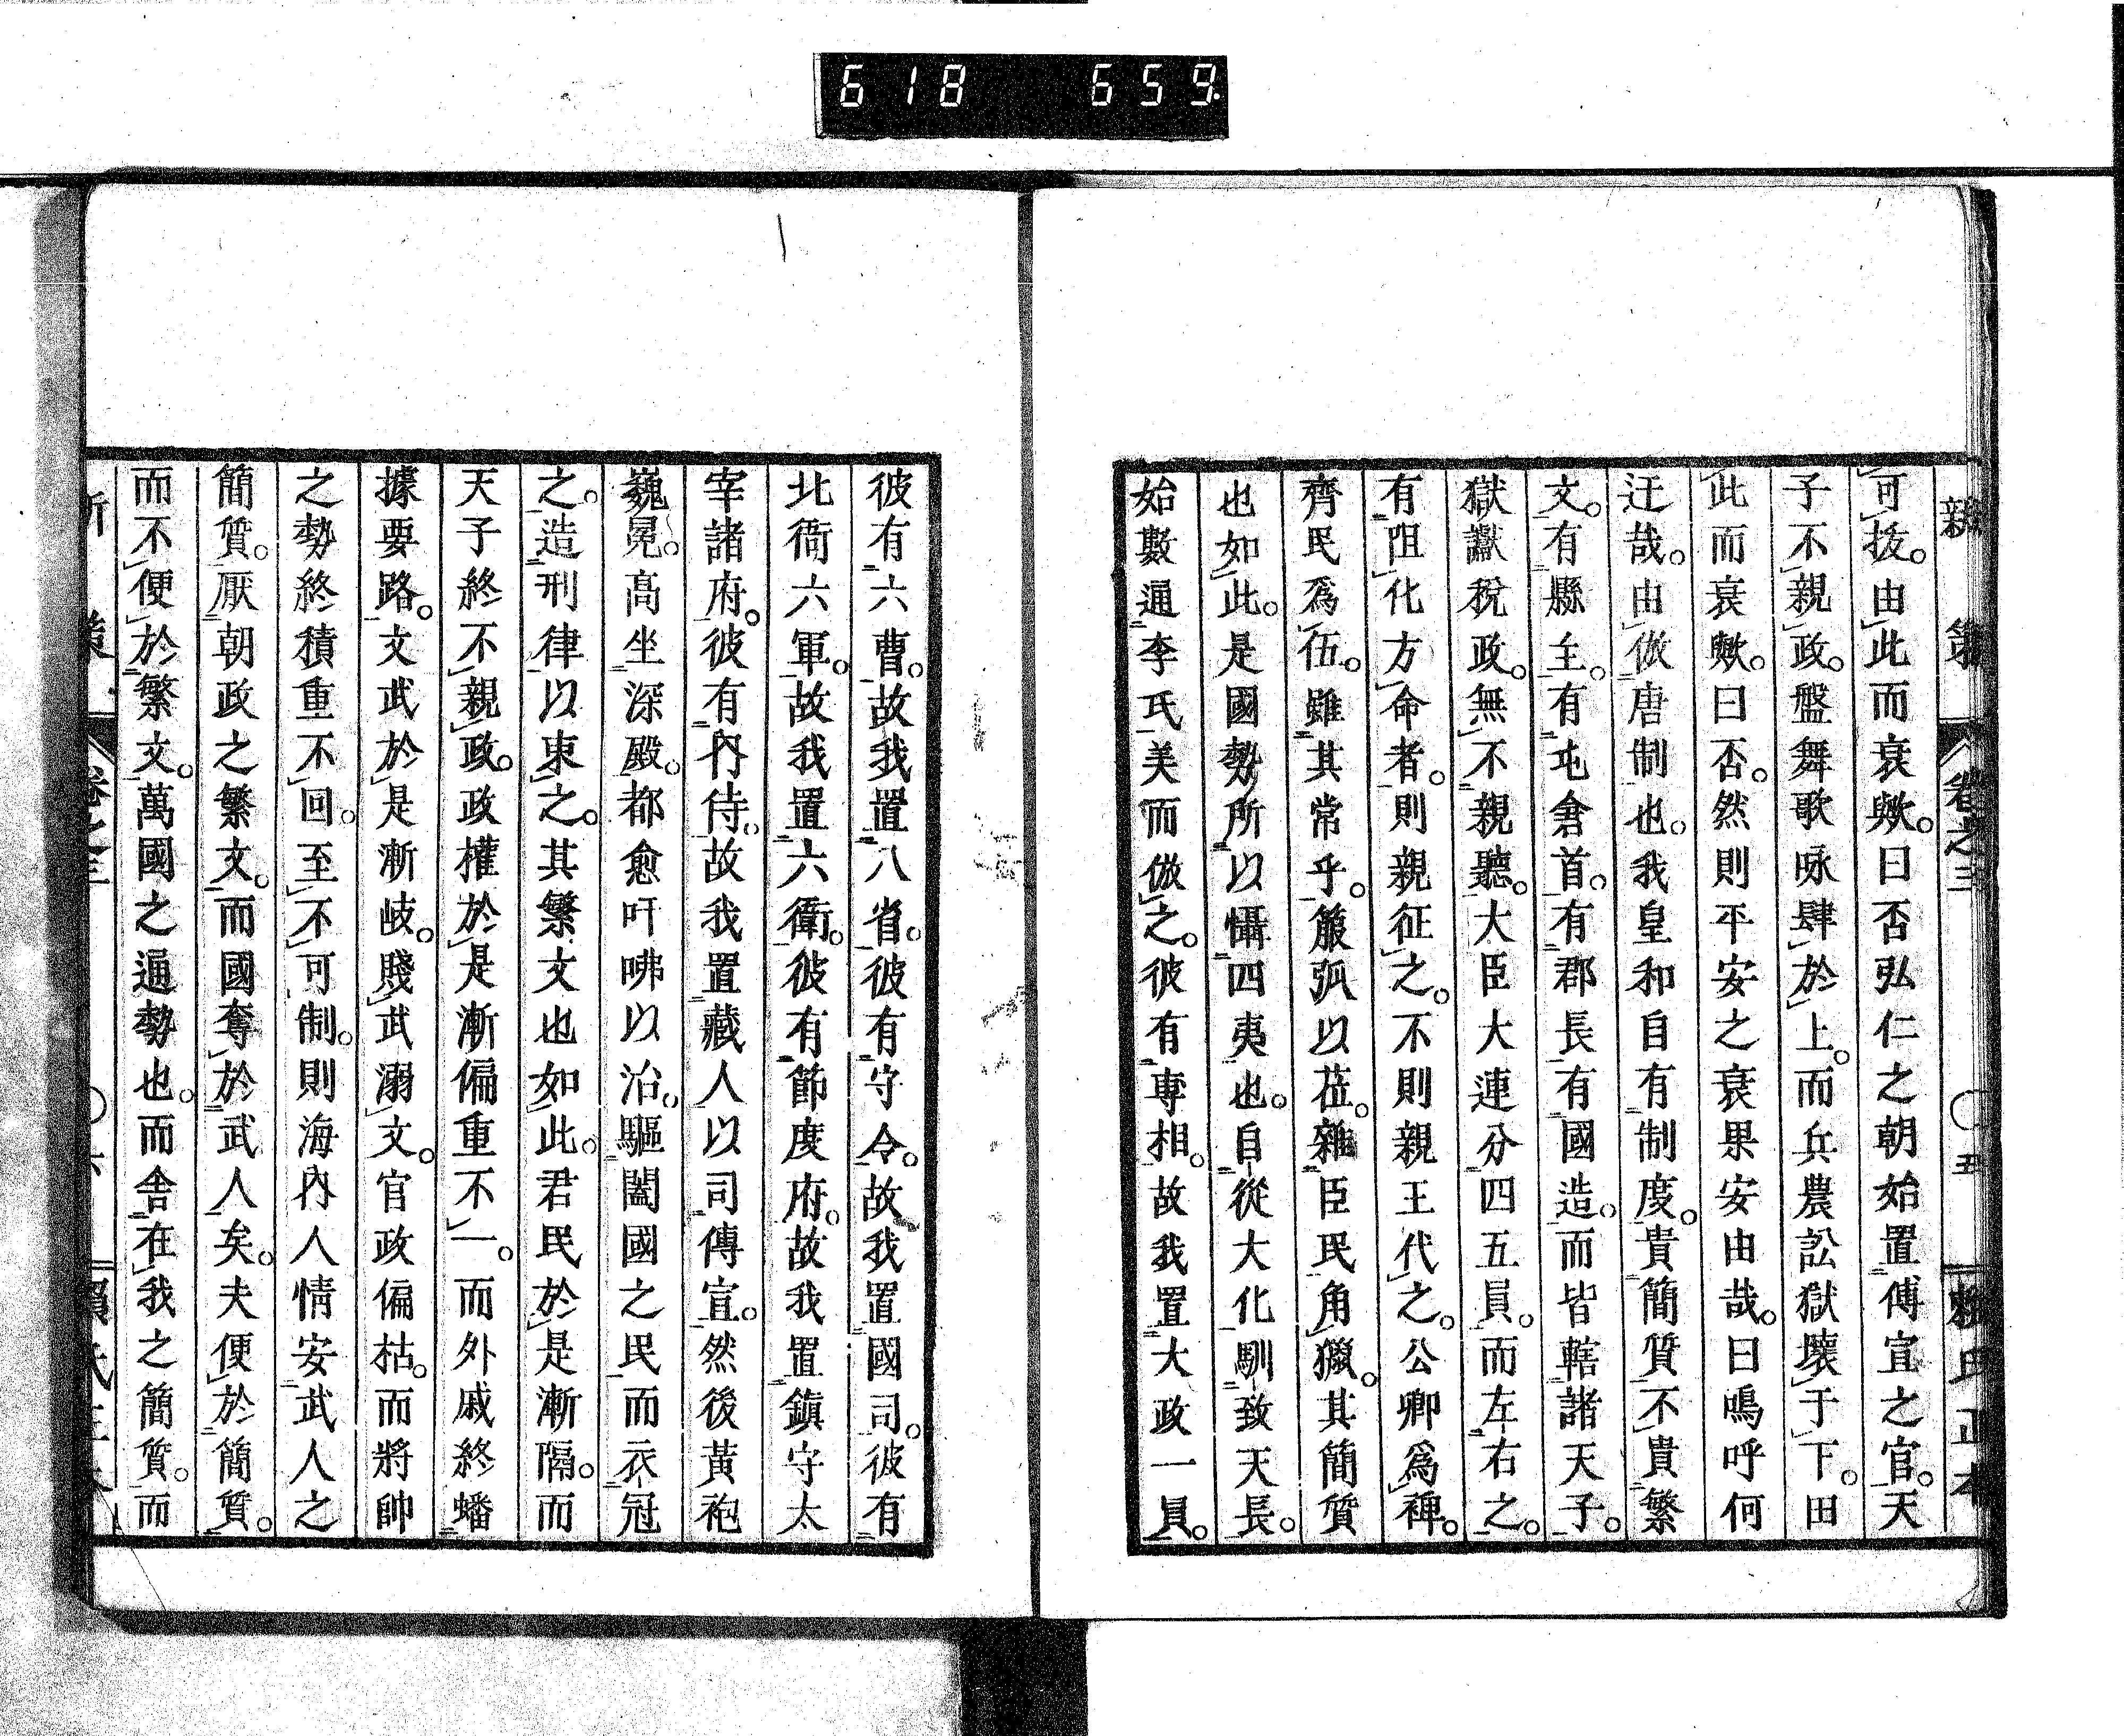 618 659.
新策 卷之三 〇五 賴氏正本
可拔。由此而衰歟。曰否弘仁之朝始置傅宣之官。天
子不親政。盤舞歌咏肆於上。而兵農訟獄壞于下。田
此而衰歟。曰否。然則平安之衰果安由哉。曰嗚呼何
迂哉。由倣唐制也。我皇和自有制度。貴簡質不貴繁
文。有縣主。有屯倉首。有郡長有國造。而皆轄諸天子。
獄讞稅政。無不親聽。大臣大連分四五員。而左右之。
有阻化方命者。則親征之。不則親王代之。公卿爲裨。
齊民爲伍。雖其常乎。箙弧以莅。雜臣民角獵。其簡質
也如此。是國勢所以懾四夷也。自從大化馴致天長。
始數通李氏美而倣之。彼有專相。故我置大政一員。
彼有六曹。故我置八省。彼有守令。故我置國司。彼有
北衙六軍。故我置六衛。彼有節度府。故我置鎭守太
宰諸府。彼有內侍。故我置藏人以司傳宣。然後黃袍
巍冕。高坐深殿。都愈吁咈以治。驅闔國之民而衣冠
之。造刑律以束之。其繁文也如此。君民於是漸隔。而
天子終不親政。政權於是漸偏重不一。而外戚終蟠
據要路。文武於是漸岐。賤武溺文。官政偏枯。而將帥
之勢終積重不回。至不可制。則海內人情安武人之
簡質。厭朝政之繁文。而國奪於武人矣。夫便於簡質。
而不便於繁文。萬國之通勢也。而舍在我之簡質。而
新策 卷之三 〇六 賴氏正本